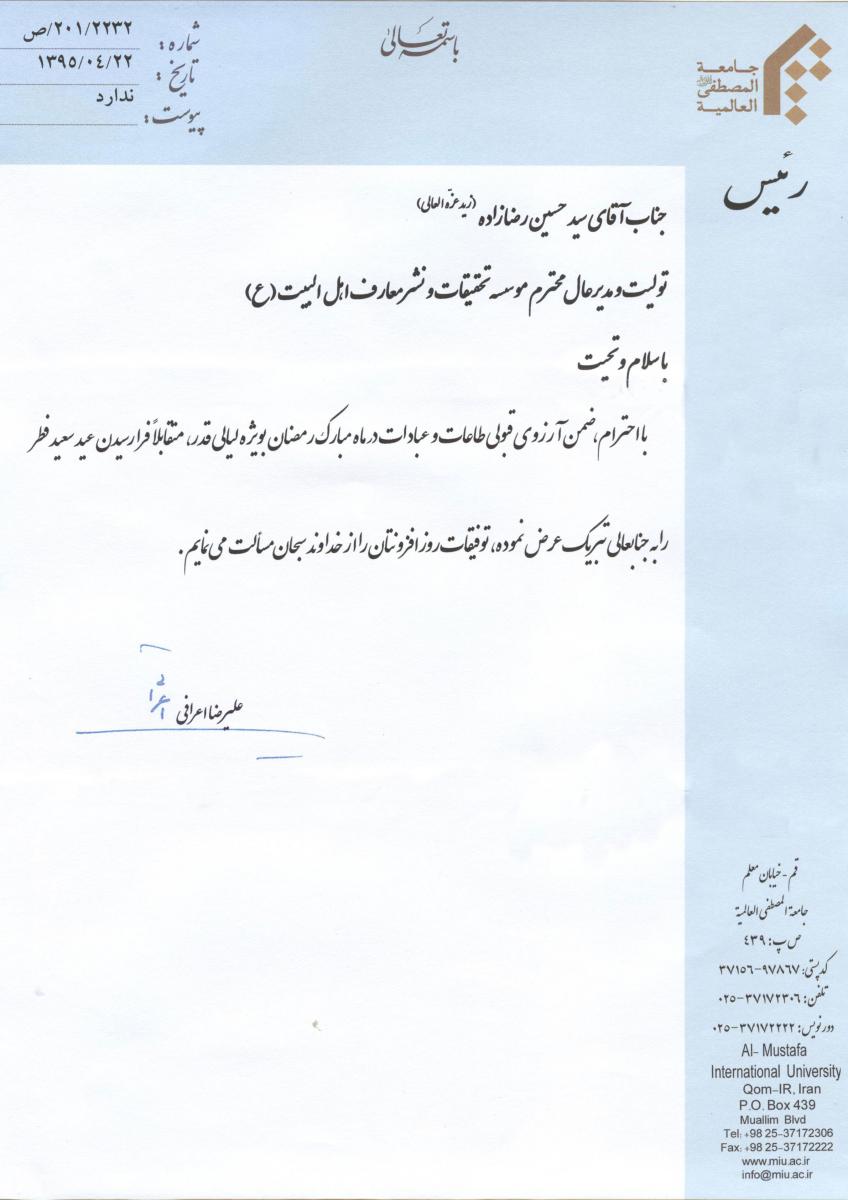 باسمه تعالی
شماره: ۲۰۱/۲۲۳۲/ص
تاریخ: ۱۳۹۵/۰۴/۲۲
پیوست: ندارد
جامعة
المصطفی ﷺ
العالمیة
رئیس
جناب آقای سید حسین رضازاده (زید عزّه العالی)
تولیت و مدیر عال محترم موسسه تحقیقات و نشر معارف اهل البیت (ع)
با سلام و تحیت
با احترام، ضمن آرزوی قبولی طاعات و عبادات در ماه مبارک رمضان بویژه لیالی قدر، متقابلاً فرارسیدن عید سعید فطر
را به جنابعالی تبریک عرض نموده، توفیقات روز افزونتان را از خداوند سبحان مسألت می نمایم.
علیرضا اعرافی
قم - خیابان معلم
جامعة المصطفی العالمیة
ص پ: ۴۳۹
کد پستی: ۹۷۸۶۷-۳۷۱۵۶
تلفن: ۳۷۱۷۲۳۰۶-۰۲۵
دورنویس: ۳۷۱۷۲۲۲۲-۰۲۵
Al- Mustafa
International University
Qom-IR, Iran
P.O. Box 439
Muallim Blvd
Tel: +98 25-37172306
Fax: +98 25-37172222
www.miu.ac.ir
info@miu.ac.ir